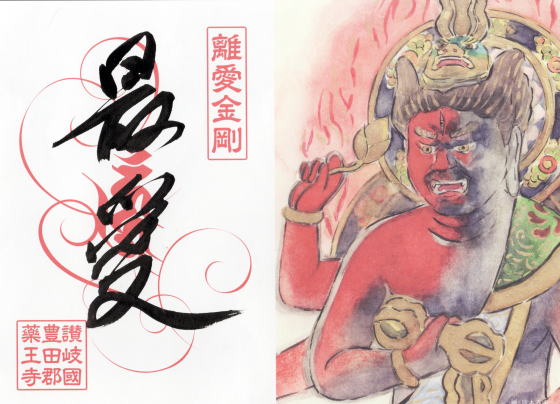 離愛金剛
最愛
讃岐國
豊田郡
藥王寺